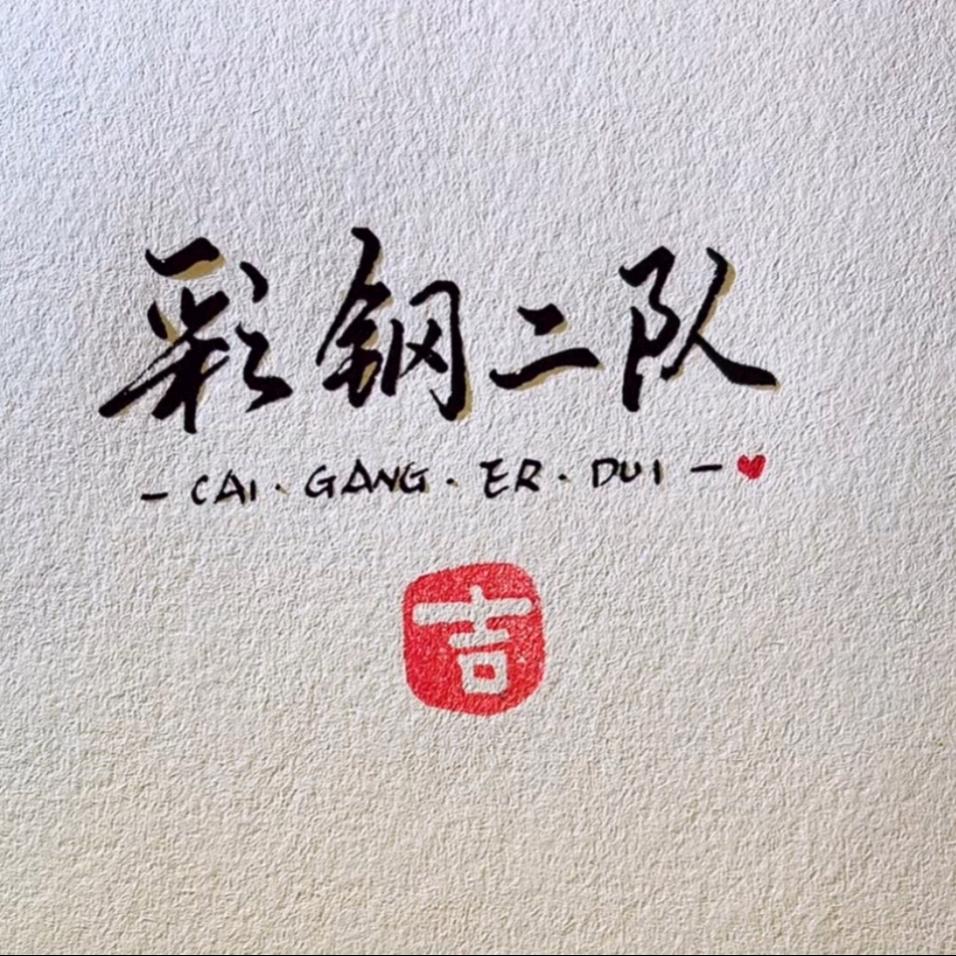 彩钢二队
- CAI · GANG · ER · DUI - ♥
吉